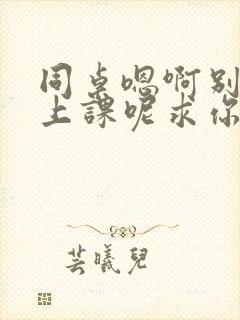 同桌嗯啊别
上课呢求你
芸曦儿